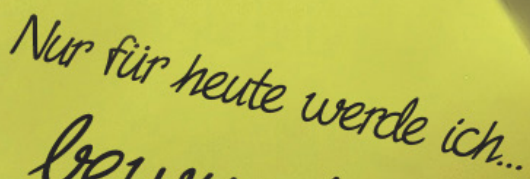 Nur für heute werde ich...